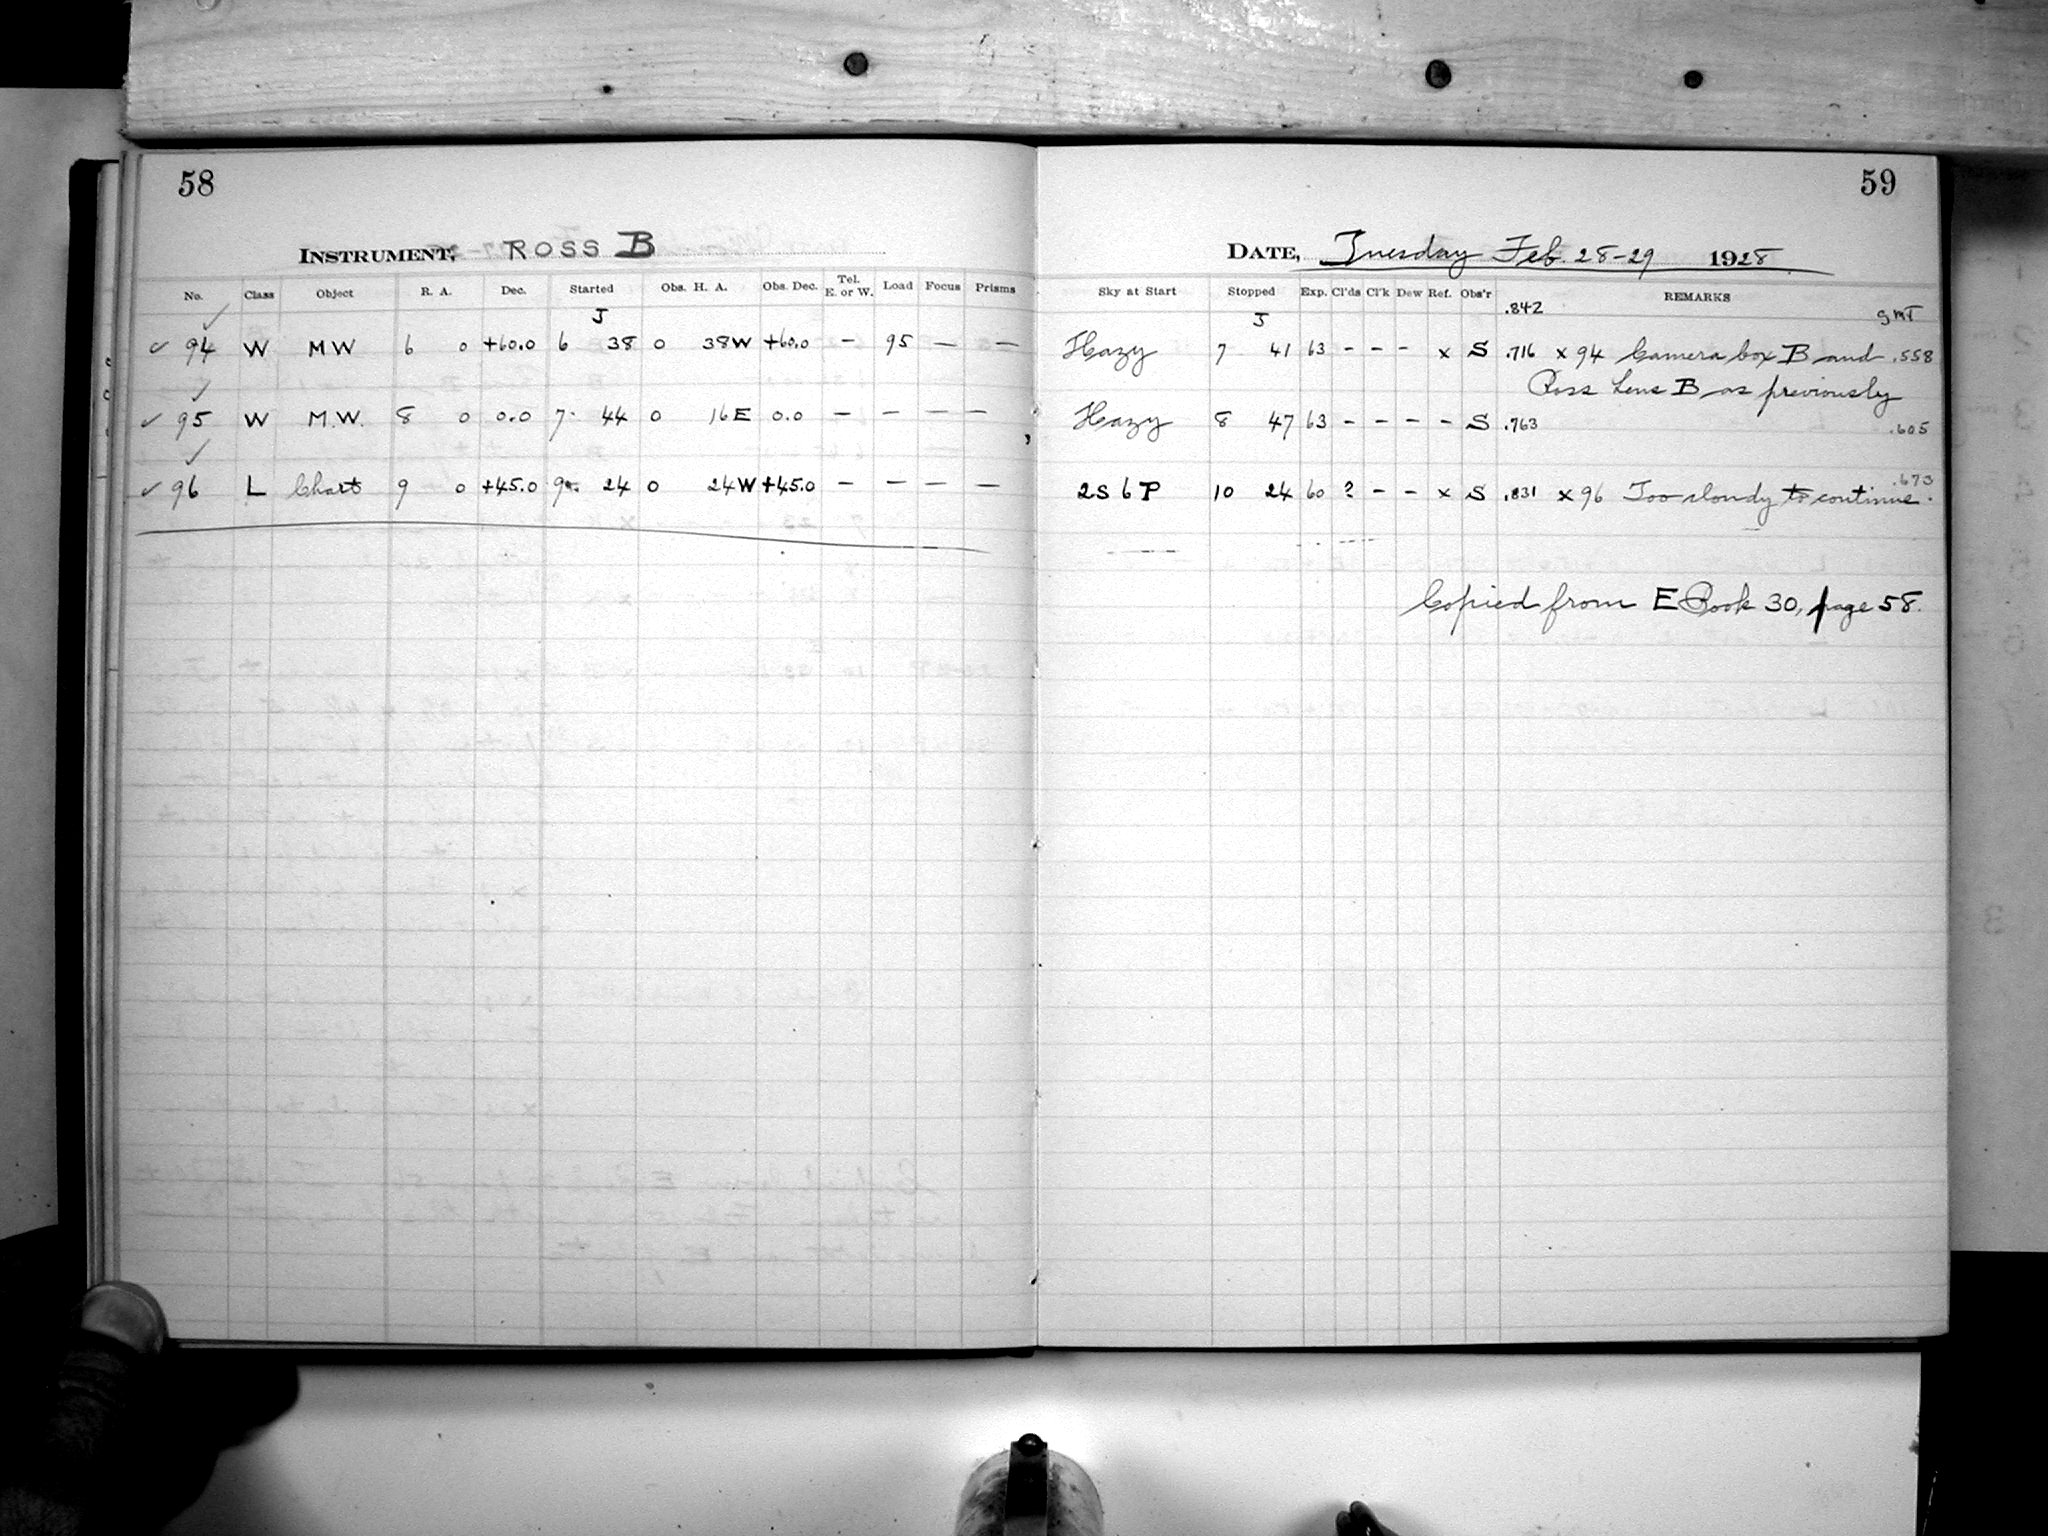 58
INSTRUMENT, ROSS B
No. Class Object R. A. Dec. Started Obs. H. A. Obs. Dec. Tel. E. or W. Load Focus Prisms
J
✓ 94 W MW 6 0 +60.0 6 38 0 38W +60.0 — 95 — —
✓ 95 W M.W. 8 0 0.0 7 44 0 16E 0.0 — — — —
✓ 96 L Chart 9 0 +45.0 9 24 0 24W +45.0 — — — —
59
DATE, Tuesday Feb. 28-29 1928
Sky at Start Stopped Exp. Cl'ds Cl'k Dew Ref. Obs'r REMARKS
J .842 GMT
Hazy 7 41 63 - - - x S .716 x 94 Camera box B and .558
Ross Lens B as previously
Hazy 8 47 63 - - - - S .763 .605
.673
2S6P 10 24 60 ? - - x S .831 x 96 Too cloudy to continue.
Copied from E Book 30, page 58.